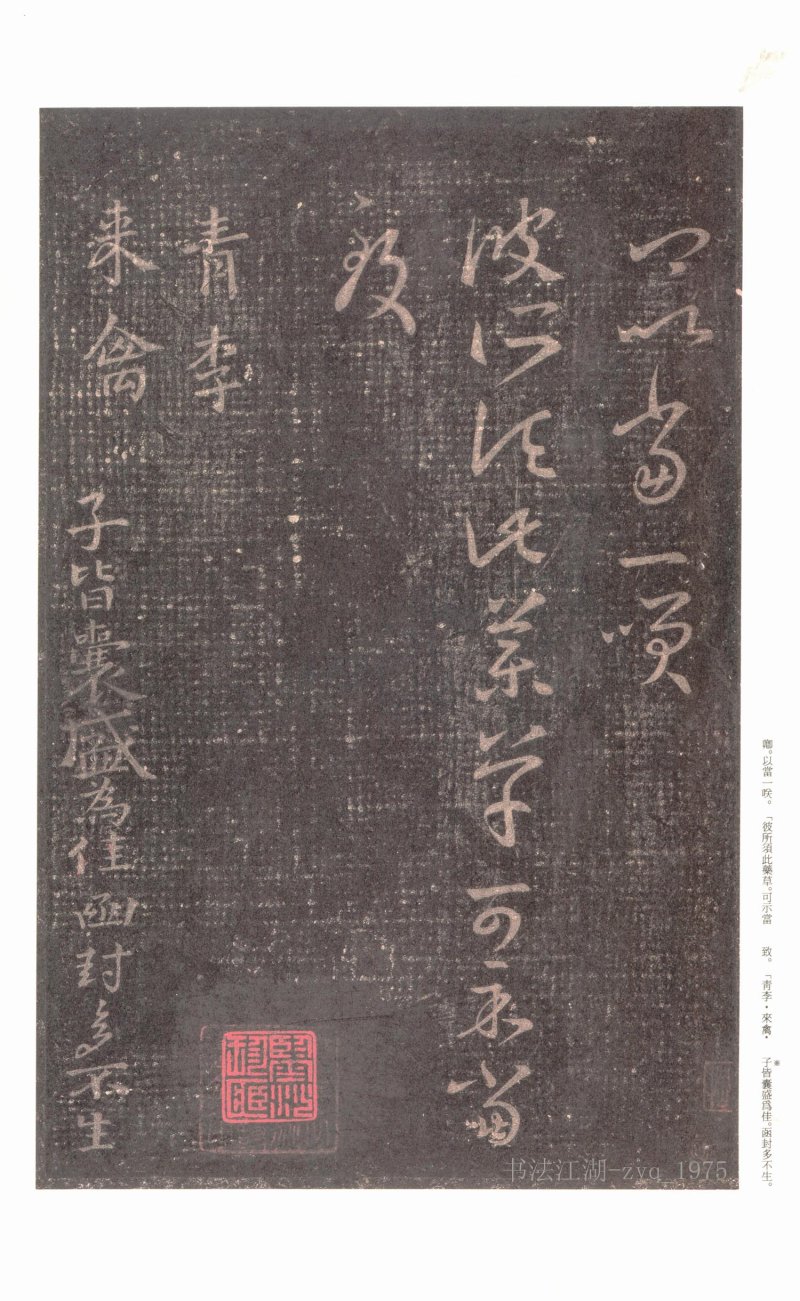 以當一咲
彼所須此藥草可示當
致
青李
来禽
子皆囊盛為佳函封多不生
嚫。以當一咲。「彼所須此藥草。可示當　致。「青李・來禽・　子皆囊盛爲佳。函封多不生。
书法江湖-zyq_1975